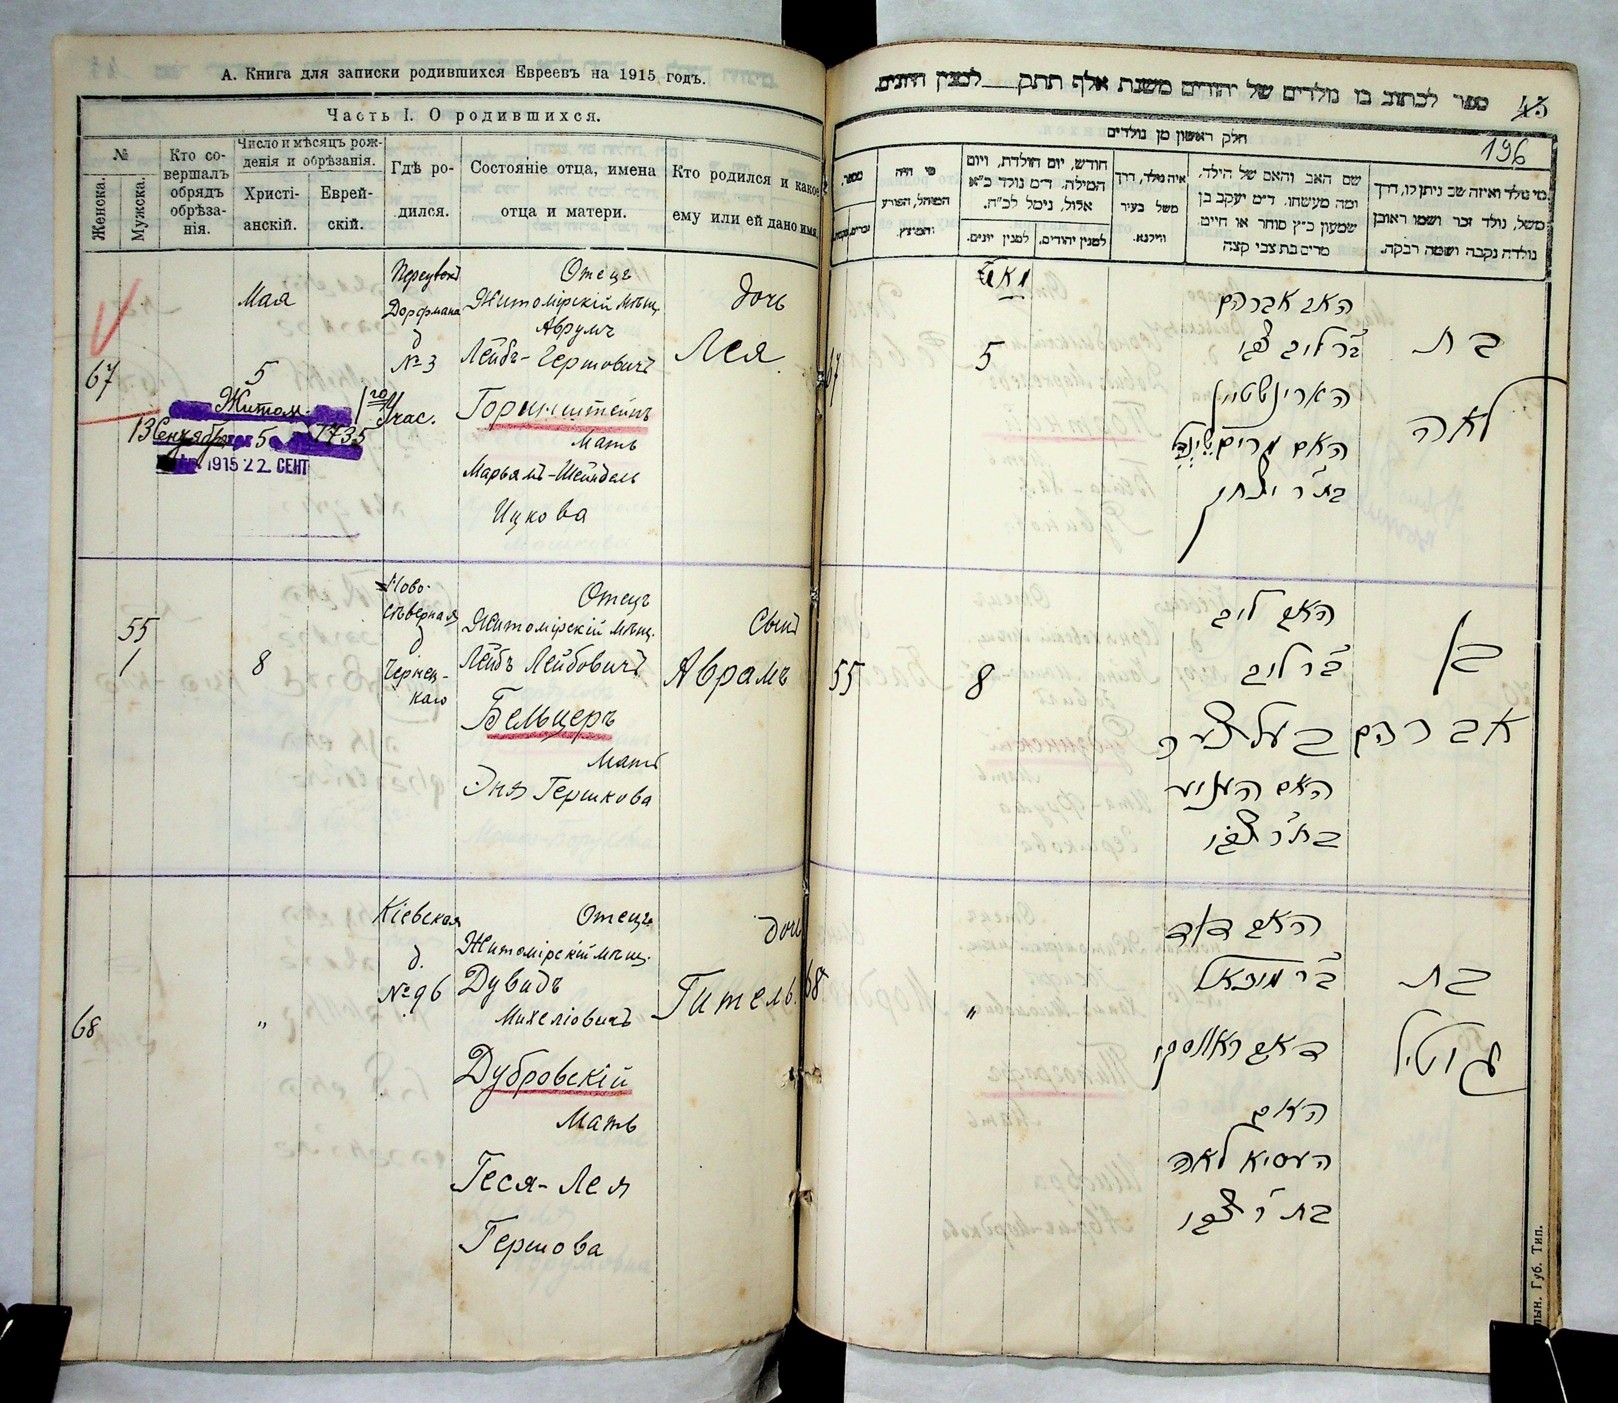 А. Книга для записки родившихся Евреевъ на 1915 годъ.
Часть I. О родившихся.
№
Женска.
Мужска.
Кто со-
вершалъ
обрядъ
обрѣза-
нія.
Число и мѣсяцъ рож-
денія и обрѣзанія.
Христі-
анскій.
Еврей-
скій.
Гдѣ ро-
дился.
Состояніе отца, имена
отца и матери.
Кто родился и какое
ему или ей дано имя.
67
Мая
5
Дорфмана
д
№ 3
Отецъ
Житомірскій мѣщ.
Аврумъ
Лейбъ-Гершовичъ
Горинштейнъ
Мать
Марьямъ-Шейндель
Ицкова
дочь
Лея.
Житом.
13 Сентября 5 1735
1915 22 СЕНТ
55
1
8
Ново-
сѣверная
д
Чернец-
каго
Отецъ
Житомірскій мѣщ.
Лейбъ Лейбовичъ
Бельцеръ
Мать
Эня Гершкова
Сынъ
Аврамъ
68
"
Кіевская
д.
№ 96
Отецъ
Житомірскій мѣщ.
Дувидъ
Михеліовичъ
Дубровскій
Мать
Геся-Лея
Гершова
дочь
Гитель.
ספר לכתוב בו נולדים של יהודים משנת אלף תתק למנין היונים.
45
196
חלק ראשון מן נולדים
מספר.
מי היה
המוהל, הפורע
והמוצץ.
חודש, יום הולדת, ויום
המילה, ד״מ נולד כ״א
אלול, נימל לכ״ח.
למנין יונים.
למנין יהודים.
איה נולד, דרך
משל בעיר
ווילנא.
שם האב והאם של הילד,
ומה מעשהו. ד״מ יעקב בן
שמעון כ״ץ סוחר או חיים
מרים בת צבי קצה
מי נולד ואיזה שם ניתן לו, דרך
משל, נולד זכר ושמו ראובן
נולדה נקבה ושמה רבקה.
67
מאי
5
האב אברהם
ב״ר ליב צבי
הארינשטיין
האם מרים שיינדל
בת ר׳ יצחק
בת
לאה
55
8
האב ליב
ב״ר ליב
בעלצער
האם העניע
בת ר׳ צבי
בן
אברהם
68
"
האב דוד
ב״ר מיכאל
דאבראווסקי
האם
העסיא לאה
בת ר׳ צבי
בת
גיטיל
лын. Губ. Тип.